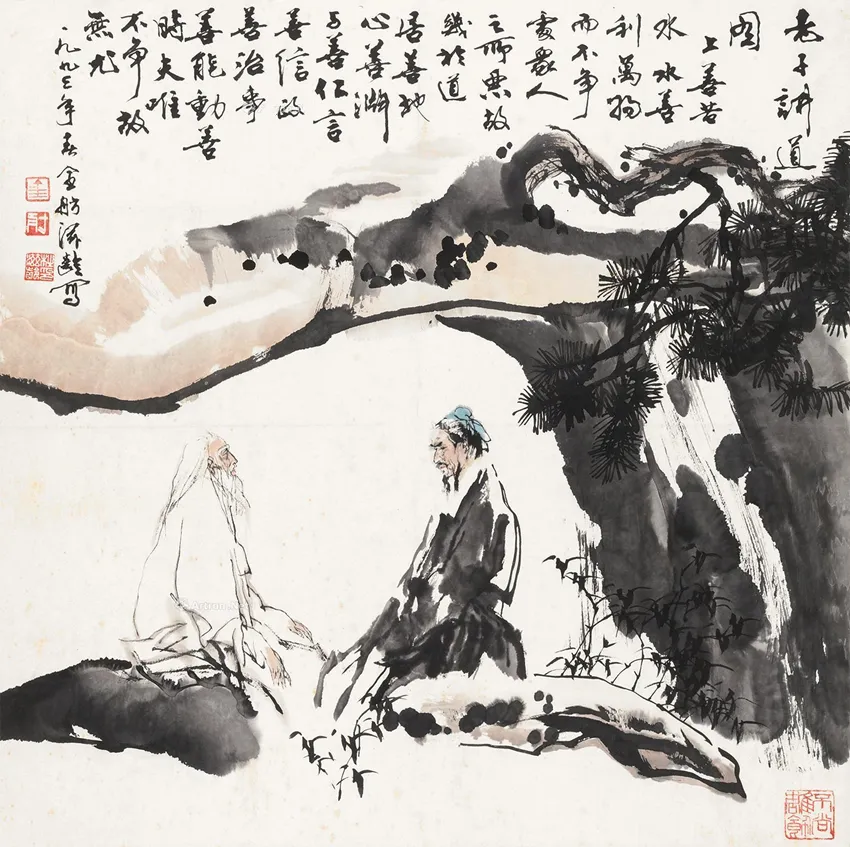 老子讲道
图
上善若
水水善
利萬物
而不争
處衆人
之所惡故
幾於道
居善地
心善渊
与善仁言
善信政
善治事
善能動善
時夫唯
不争故
無尤
一九九三年春金舫寫
不尚雕飾